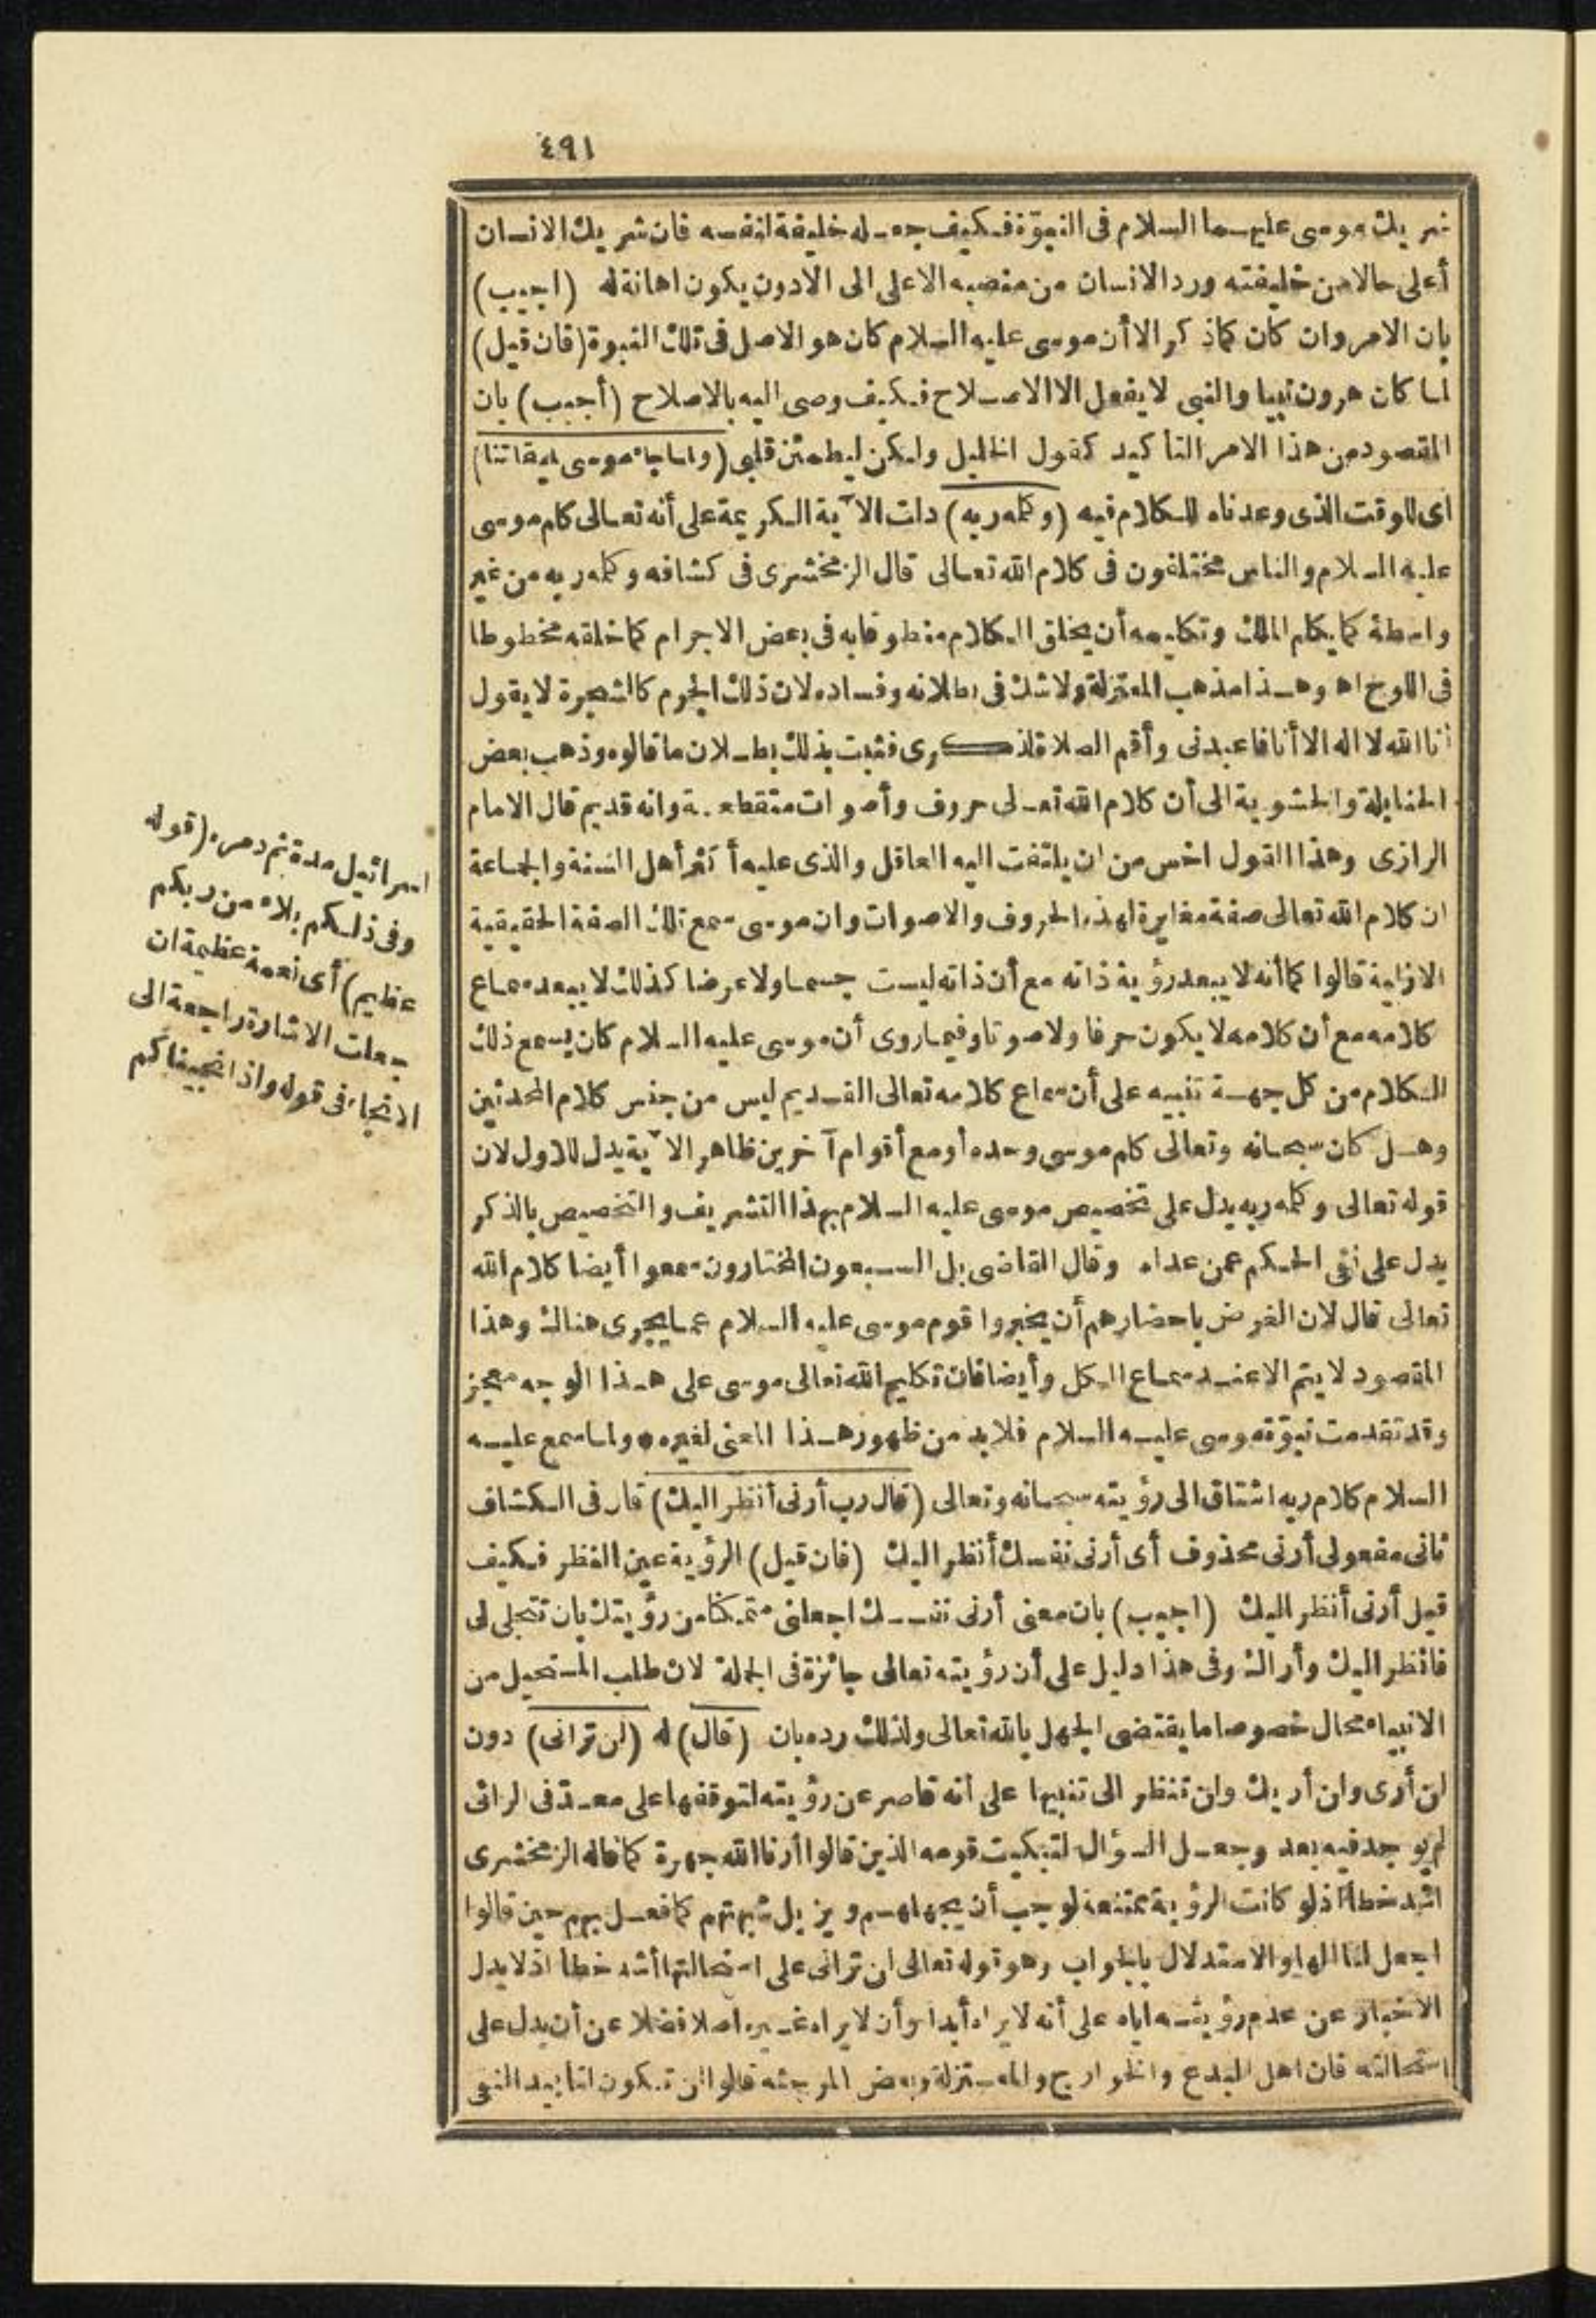 ٤٩١
شريك موسى عليهما السلام فى النبوّة فكيف جعله خليفة لنفسه فان شريك الانسان
أعلى حالا من خليفته ورد الانسان من منصبه الاعلى الى الادون يكون اهانة له (اجيب)
بان الامر وان كان كماذكر الا أن موسى عليه السلام كان هو الاصل فى تلك النبوة (فان قيل)
لما كان هرون نبيا والنبى لا يفعل الا الاصلاح فكيف وصى اليه بالاصلاح (أجيب) بان
المقصود من هذا الامر التأكيد كقول الخليل ولكن ليطمئن قلبى (ولما جاء موسى لميقاتنا)
اى للوقت الذى وعدناه للكلام فيه (وكلمه ربه) دلت الآية الكريمة على أنه تعالى كلم موسى
عليه السلام والناس مختلفون فى كلام الله تعالى قال الزمخشرى فى كشافه وكلمه ربه من غير
واسطة كما يكلم الملك وتكليمه أن يخلق الكلام منطوقا به فى بعض الاجرام كما خلقه مخطوطا
فى اللوح اه وهذا مذهب المعتزلة ولاشك فى بطلانه وفساده لان ذلك الجرم كالشجرة لا يقول
أنا الله لا اله الا أنا فاعبدنى وأقم الصلاة لذكرى فثبت بذلك بطلان ما قالوه وذهب بعض
الحنابلة والحشوية الى أن كلام الله تعالى حروف وأصوات متقطعة وانه قديم قال الامام
الرازى وهذا القول اخس من ان يلتفت اليه العاقل والذى عليه أكثر أهل السنة والجماعة
ان كلام الله تعالى صفة مغايرة لهذه الحروف والاصوات وان موسى سمع تلك الصفة الحقيقية
الازلية قالوا كما أنه لا يبعد رؤية ذاته مع أن ذاته ليست جسما ولا عرضا كذلك لا يبعد سماع
كلامه مع أن كلامه لا يكون حرفا ولا صوتا وفيما روى أن موسى عليه السلام كان يسمع ذلك
الكلام من كل جهة تنبيه على أن سماع كلامه تعالى القديم ليس من جنس كلام المحدثين
وهل كان سبحانه وتعالى كلم موسى وحده أو مع أقوام آخرين ظاهر الآية يدل للاول لان
قوله تعالى وكلمه ربه يدل على تخصيص موسى عليه السلام بهذا التشريف والتخصيص بالذكر
يدل على نفى الحكم عمن عداه وقال القاضى بل السبعون المختارون سمعوا أيضا كلام الله
تعالى قال لان الغرض باحضارهم أن يخبروا قوم موسى عليه السلام عما يجرى هناك وهذا
المقصود لا يتم الا عند سماع الكل وأيضا فان تكليم الله تعالى موسى على هذا الوجه معجز
وقد تقدمت نبوّة موسى عليه السلام فلا بد من ظهور هذا المعنى لغيره ● ولما سمع عليه
السلام كلام ربه اشتاق الى رؤيته سبحانه وتعالى (قال رب أرنى أنظر اليك) قال فى الكشاف
ثانى مفعولى أرنى محذوف أى أرنى نفسك أنظر اليك (فان قيل) الرؤية عين النظر فكيف
قيل أرنى أنظر اليك (اجيب) بان معنى أرنى نفسك اجعلنى متمكنا من رؤيتك بان تتجلى لى
فانظر اليك وأراك وفى هذا دليل على أن رؤيته تعالى جائزة فى الجملة لان طلب المستحيل من
الانبياء محال خصوصا ما يقتضى الجهل بالله تعالى ولذلك رده بان (قال) له (لن ترانى) دون
لن أرى ولن أريك ولن تنظر الى تنبيها على أنه قاصر عن رؤيته لتوقفها على معدّ فى الرائى
لم يوجد فيه بعد وجعل السؤال لتبكيت قومه الذين قالوا أرنا الله جهرة كما قاله الزمخشرى
اشد خطأ اذ لو كانت الرؤية ممتنعة لوجب أن يجهلهم ويزيل شبهتهم كما فعل بهم حين قالوا
اجعل لنا الها والاستدلال بالجواب وهو قوله تعالى لن ترانى على استحالتها أشد خطأ اذ لا يدل
الاخبار عن عدم رؤيته اياه على أنه لا يراه أبدا وأن لا يراه غيره أصلا فضلا عن أن يدل على
استحالته فان اهل البدع والخوارج والمعتزلة وبعض المرجئه قالوا لن تكون لتأبيد النفى
اسرائيل مدة بتمصر، (قوله
وفى ذلكم بلاء من ربكم
عظيم) أى نعمة عظيمة ان
جعلت الاشارة راجعة الى
الانجاء فى قوله واذ انجيناكم